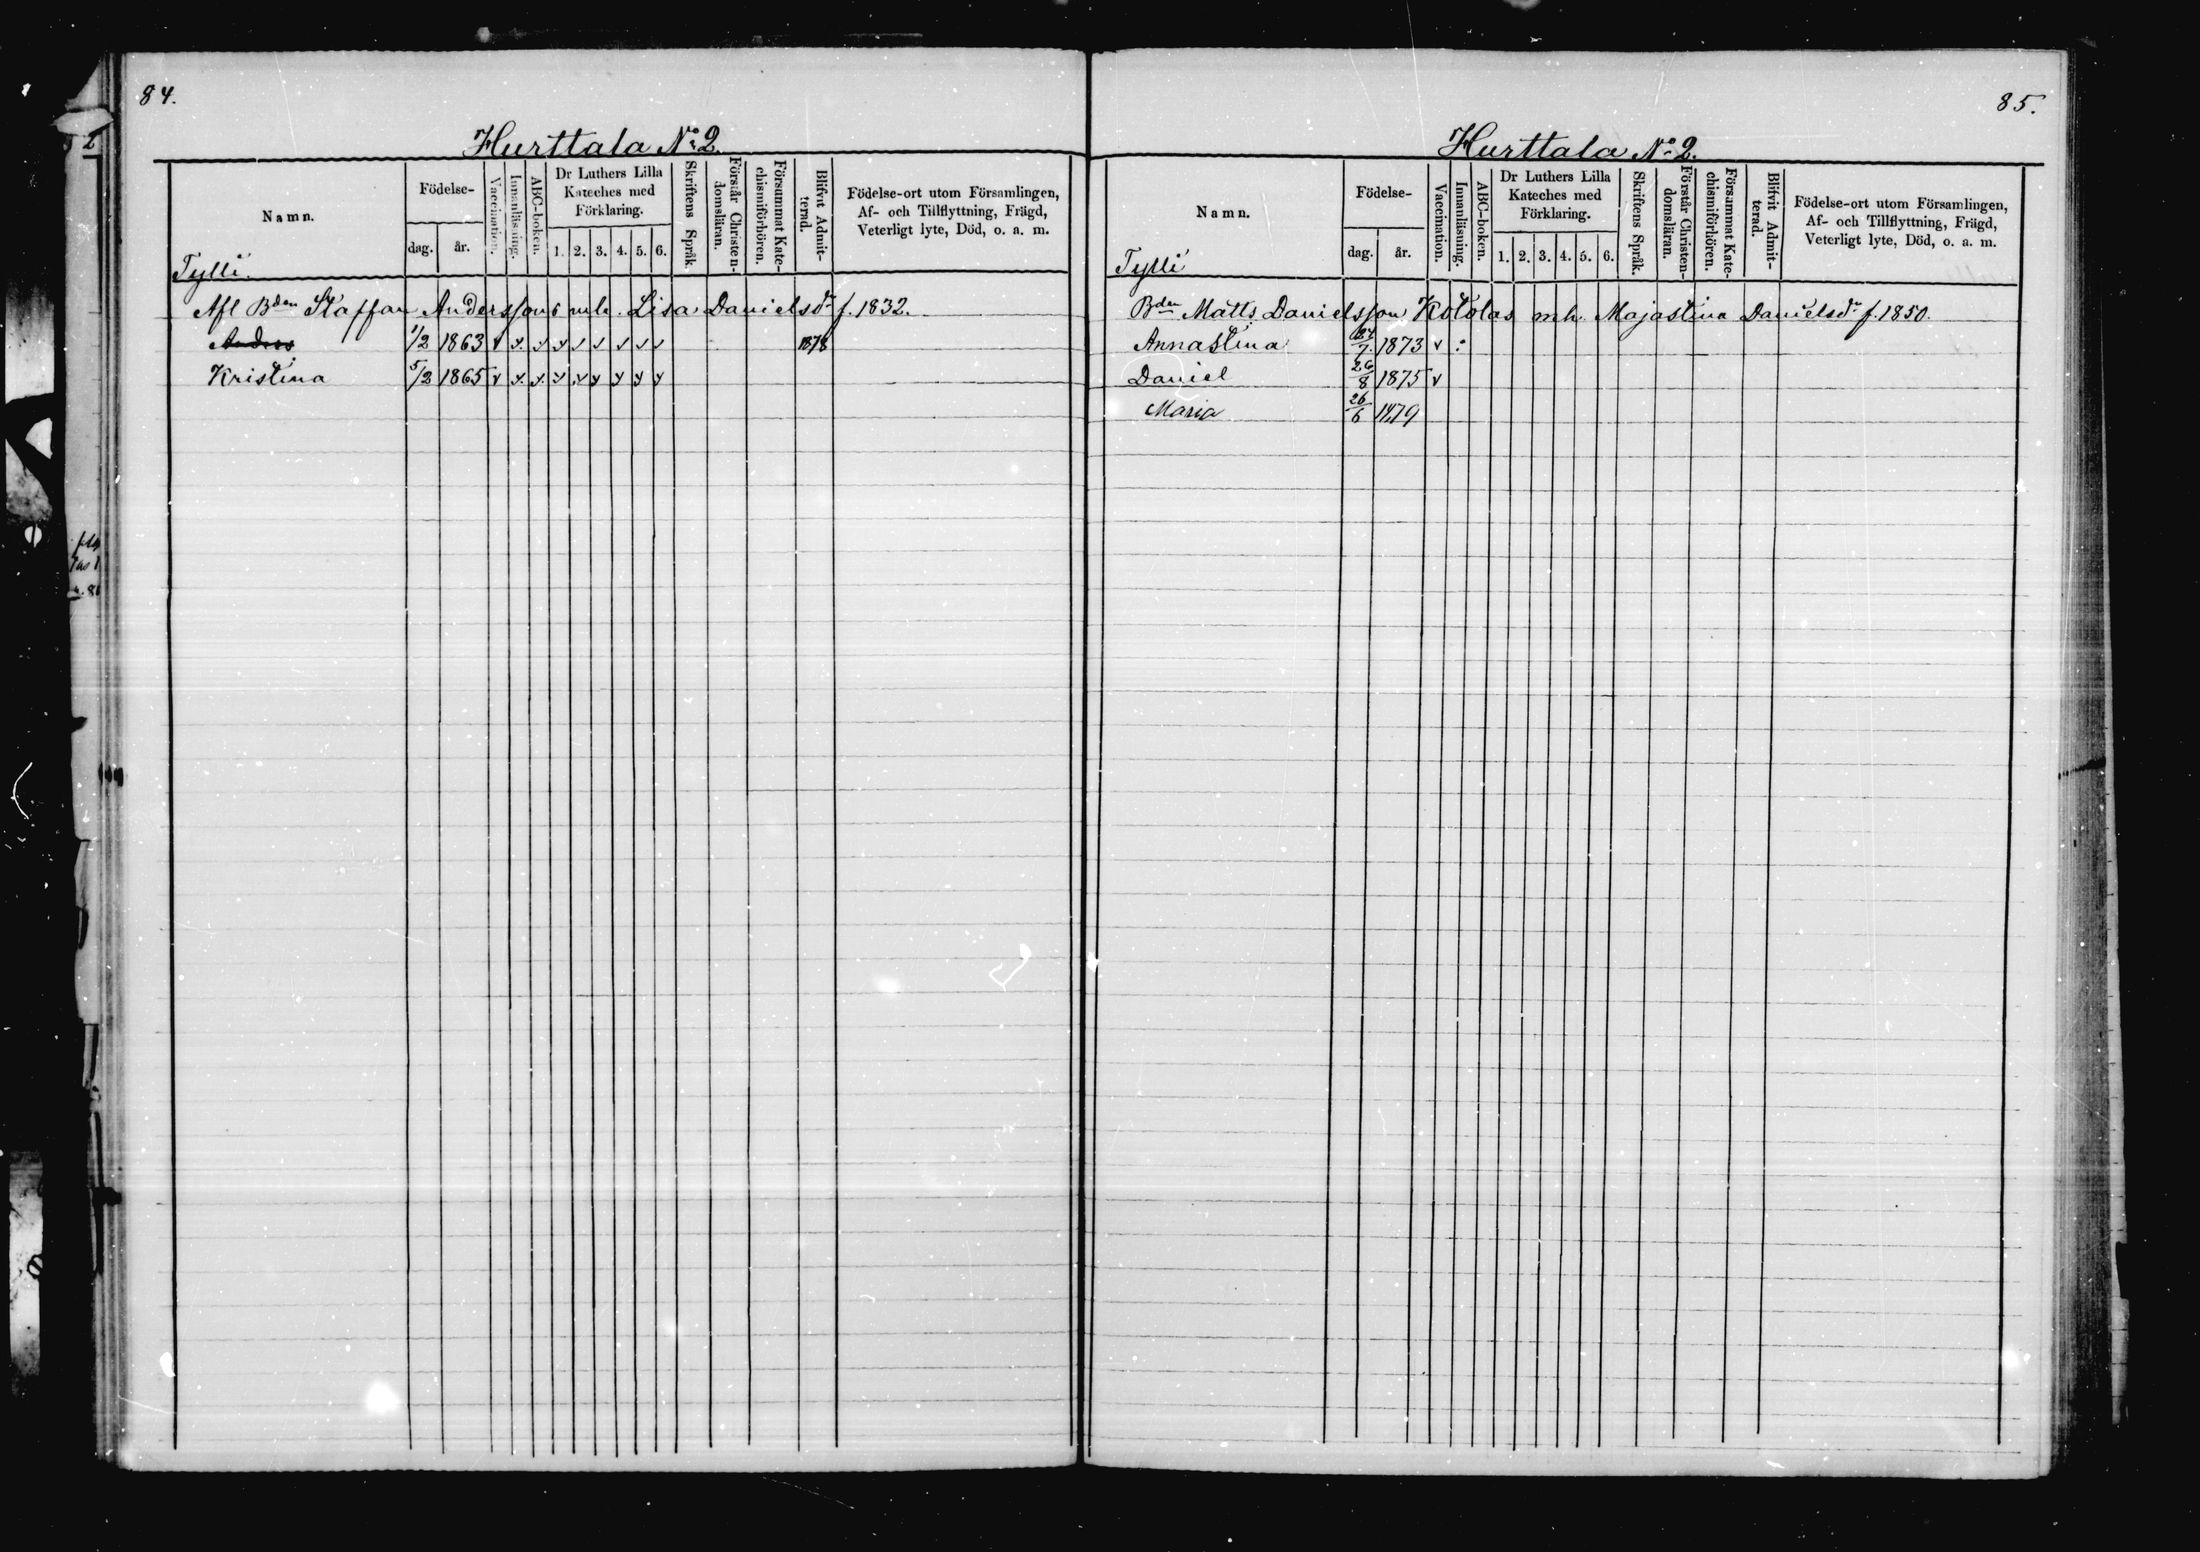 84.
Hurttala No 2.
Namn.
Födelse-
dag. år.
Vaccination.
Innanläsning.
ABC-boken.
Dr Luthers Lilla Kateches med Förklaring.
1. 2. 3. 4. 5. 6.
Skriftens Språk.
Förstår Christendomsläran.
Försummat Katechismiförhören.
Blifvit Admitterad.
Födelse-ort utom Församlingen,
Af- och Tillflyttning, Frägd,
Veterligt lyte, Död, o. a. m.
Tylli.
Afl Bden Staffan Anderssons mh. Lisa Danielsdr f. 1832.
Anders 1/2 1863 v y. y y y y y y y 1878
Kristina 5/2 1865 v y. y. y y y y y y
85.
Hurttala No 2.
Namn.
Födelse-
dag. år.
Vaccination.
Innanläsning.
ABC-boken.
Dr Luthers Lilla Kateches med Förklaring.
1. 2. 3. 4. 5. 6.
Skriftens Språk.
Förstår Christendomsläran.
Försummat Katechismiförhören.
Blifvit Admitterad.
Födelse-ort utom Församlingen,
Af- och Tillflyttning, Frägd,
Veterligt lyte, Död, o. a. m.
Tylli
Bden Matts Danielsson Kotolas mh. Majastina Danielsdr f. 1850.
Annastina 7. 1873 v :
Daniel 26/8 1875 v
Maria 26/6 1879